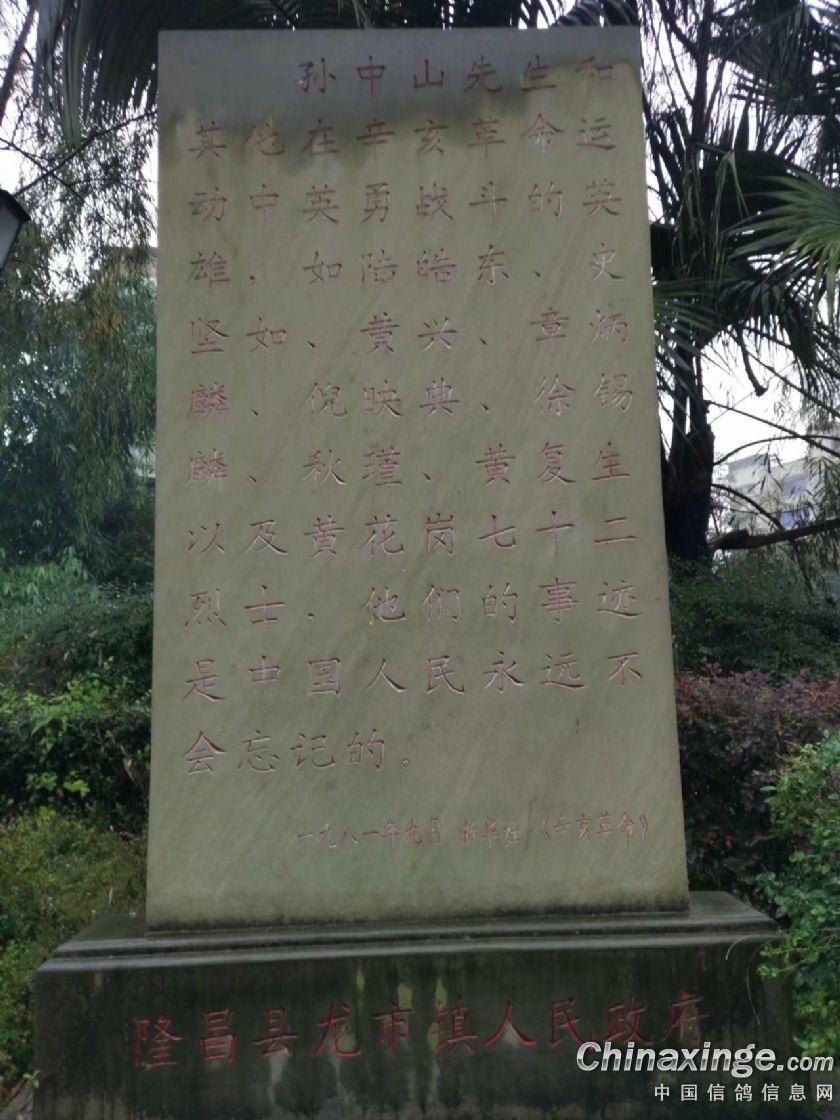 孙中山先生和
其他在辛亥革命运
动中英勇战斗的英
雄、如陆皓东、史
坚如、黄兴、章炳
麟、倪映典、徐锡
麟、秋瑾、黄复生
以及黄花岗七十二
烈士、他们的事迹
是中国人民永远不
会忘记的。
一九八一年九月 新华社《辛亥革命》
隆昌县龙市镇人民政府
Chinaxinge.com
中国信鸽信息网